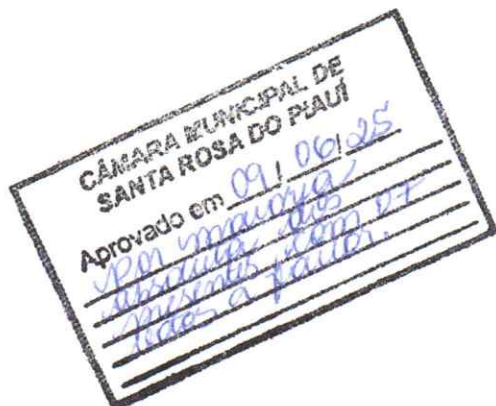 CÂMARA MUNICIPAL DE
SANTA ROSA DO PIAUÍ
Aprovado em 09/06/25
por maioria
absoluta dos
presentes com 07
votos a favor.